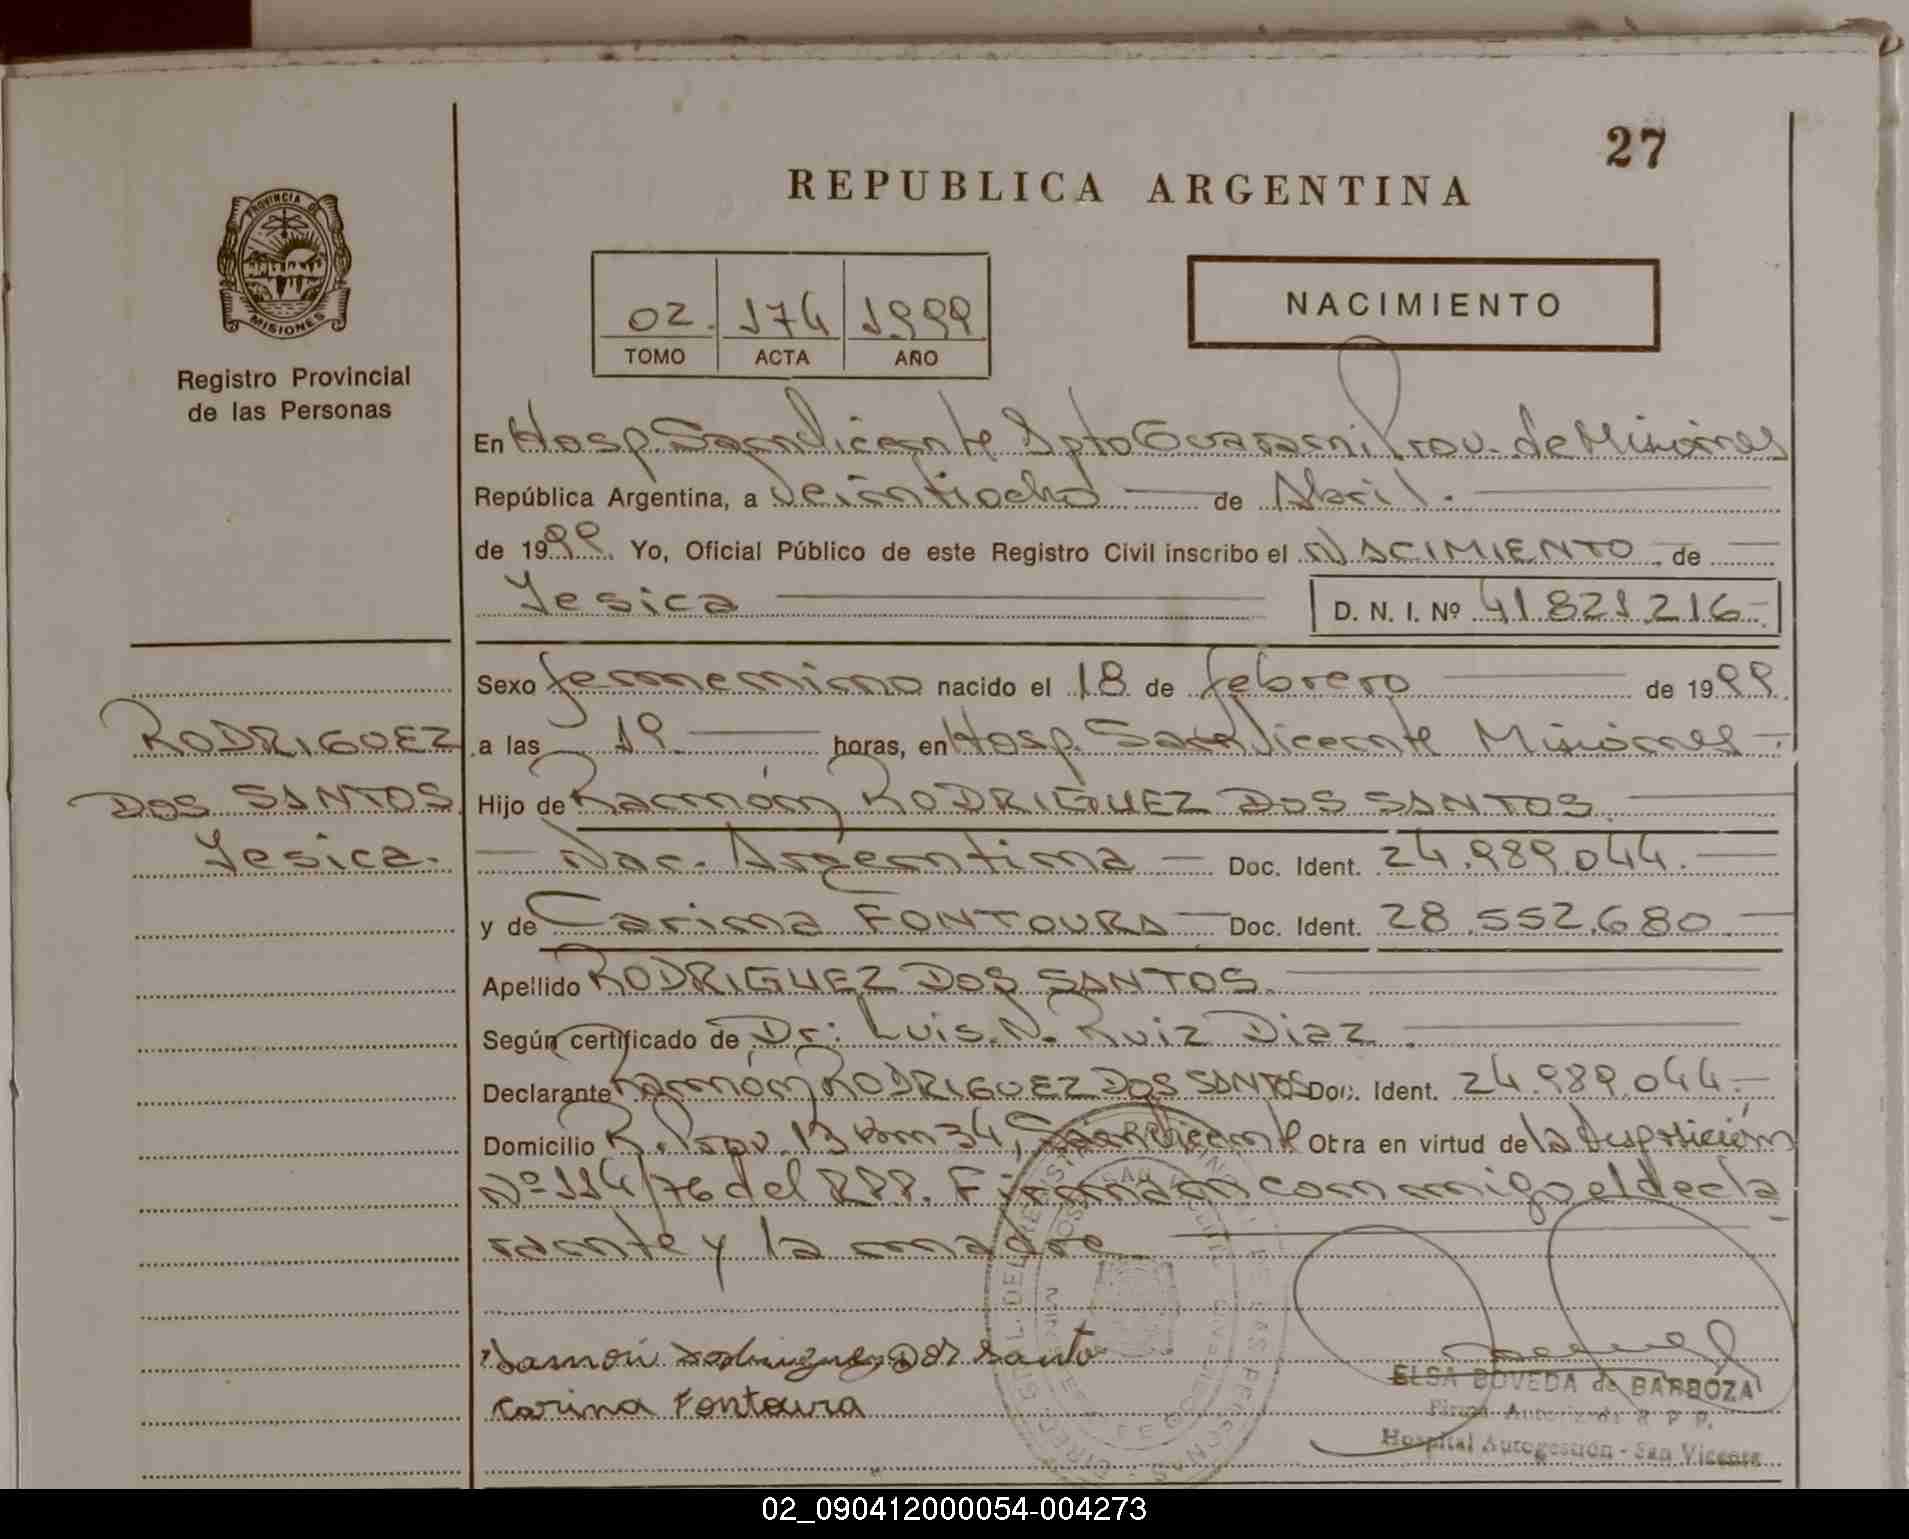 27
REPUBLICA ARGENTINA
PROVINCIA DE
MISIONES
Registro Provincial
de las Personas
02. 174 1999
TOMO ACTA AÑO
NACIMIENTO
En Hosp. San Vicente Dpto Guarani Prov. de Misiones
República Argentina, a veintiocho de Abril.
de 1999. Yo, Oficial Público de este Registro Civil inscribo el NACIMIENTO de
Yesica
D. N. I. Nº 41.821.216.-
Sexo femenino nacido el 18 de febrero de 1999.
RODRIGUEZ
a las 19 horas, en Hosp. San Vicente Misiones -
DOS SANTOS
Hijo de Ramón RODRIGUEZ DOS SANTOS.
Yesica.
Nac. Argentina Doc. Ident. 24.989.044.
y de Carina FONTOURA Doc. Ident. 28.552.680.
Apellido RODRIGUEZ DOS SANTOS.
Según certificado de Dr: Luis. N. Ruiz Diaz.
Declarante Ramón RODRIGUEZ DOS SANTOS Doc. Ident. 24.989.044.-
Domicilio R. Prov. 13 km 34, San Vicente Otra en virtud de la disposición
Nº 114/76 del RPP. Firman conmigo el decla
rante y la madre
Ramón Rodriguez Dos Santo
Carina Fontoura
ELSA BOVEDA de BARBOZA
Firma Autorizada R P P.
Hospital Autogestión - San Vicente
02_090412000054-004273